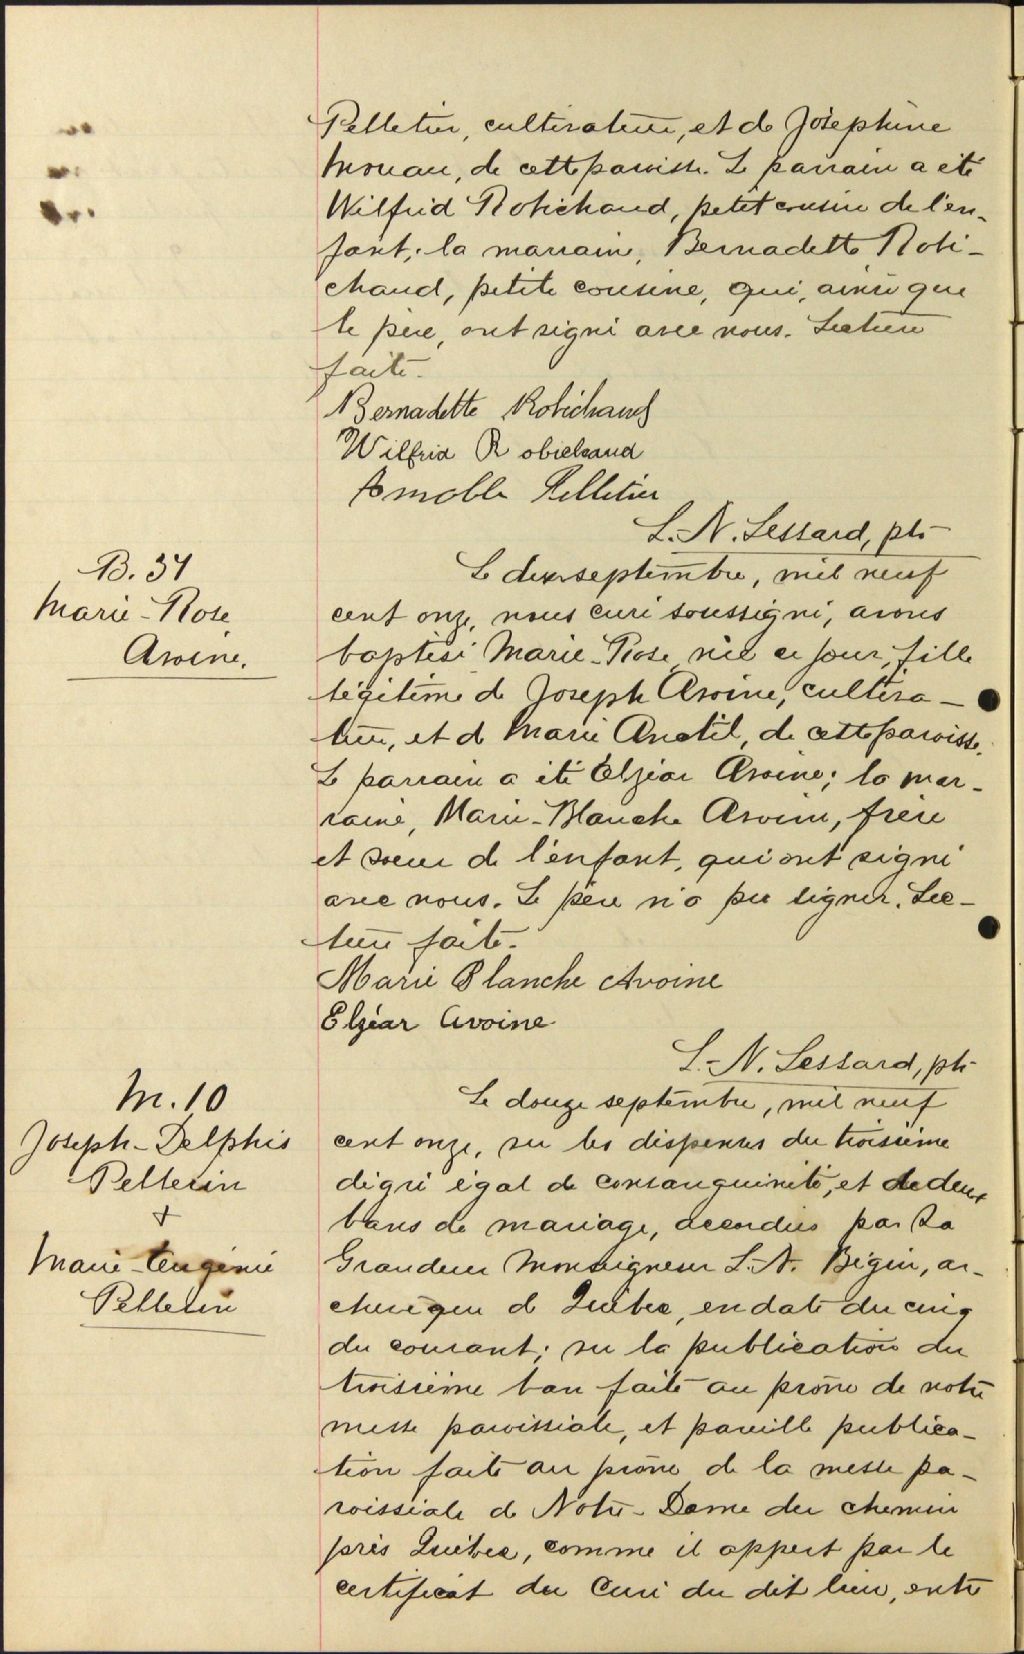 Pelletier, cultivateur, et de Joséphine
Moreau, de cette paroisse. Le parrain a été
Wilfrid Robichaud, petit cousin de l'en-
fant; la marraine, Bernadette Robi-
chaud, petite cousine, qui, ainsi que
le père, ont signé avec nous. Lecture
faite.
Bernadette Robichaud
Wilfrid Robichaud
Amable Pelletier
L.-N. Lessard, ptr
B. 37
Marie-Rose
Avoine.
Le deux septembre, mil neuf
cent onze, nous curé soussigné, avons
baptisé Marie-Rose, née ce jour, fille
légitime de Joseph Avoine, cultiva-
teur, et de Marie Anctil, de cette paroisse.
Le parrain a été Elzéar Avoine; la mar-
raine, Marie-Blanche Avoine, frère
et soeur de l'enfant, qui ont signé
avec nous. Le père n'a pu signer. Lec-
ture faite.
Marie Blanche Avoine
Elzéar Avoine
L.-N. Lessard, ptr
M. 10
Joseph-Delphis
Pellerin
+
Marie-Eugénie
Pellerin
Le douze septembre, mil neuf
cent onze, vu les dispenses du troisième
degré égal de consanguinité, et de deux
bans de mariage, accordées par Sa
Grandeur Monseigneur L.-N. Bégin, ar-
chevêque de Québec, en date du cinq
du courant; vu la publication du
troisième ban faite au prône de notre
messe paroissiale, et pareille publica-
tion faite au prône de la messe pa-
roissiale de Notre-Dame du chemin
près Québec, comme il appert par le
certificat du Curé du dit lieu, entre